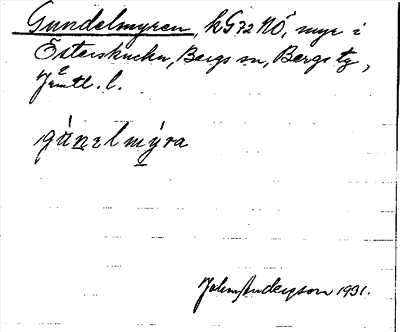 Gundelmyren, kG72NÖ, myr i
Österskucku, Bergs sn, Bergs tg,
Jämtl. l.
gúnelmýra
John Andersson 1931.